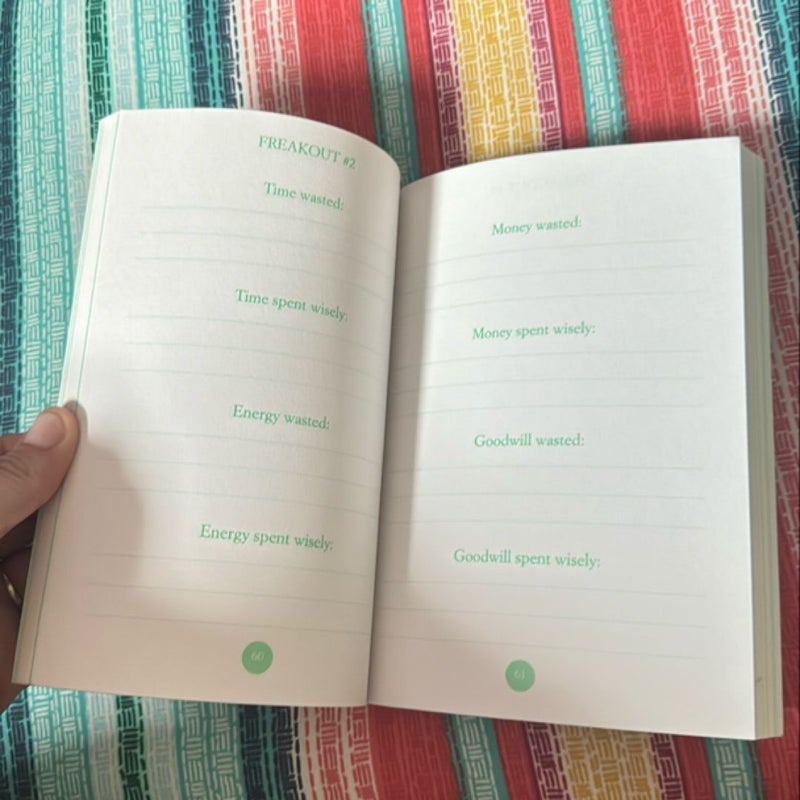 FREAKOUT #2
Time wasted:
Time spent wisely:
Energy wasted:
Energy spent wisely:
60
Money wasted:
Money spent wisely:
Goodwill wasted:
Goodwill spent wisely:
61